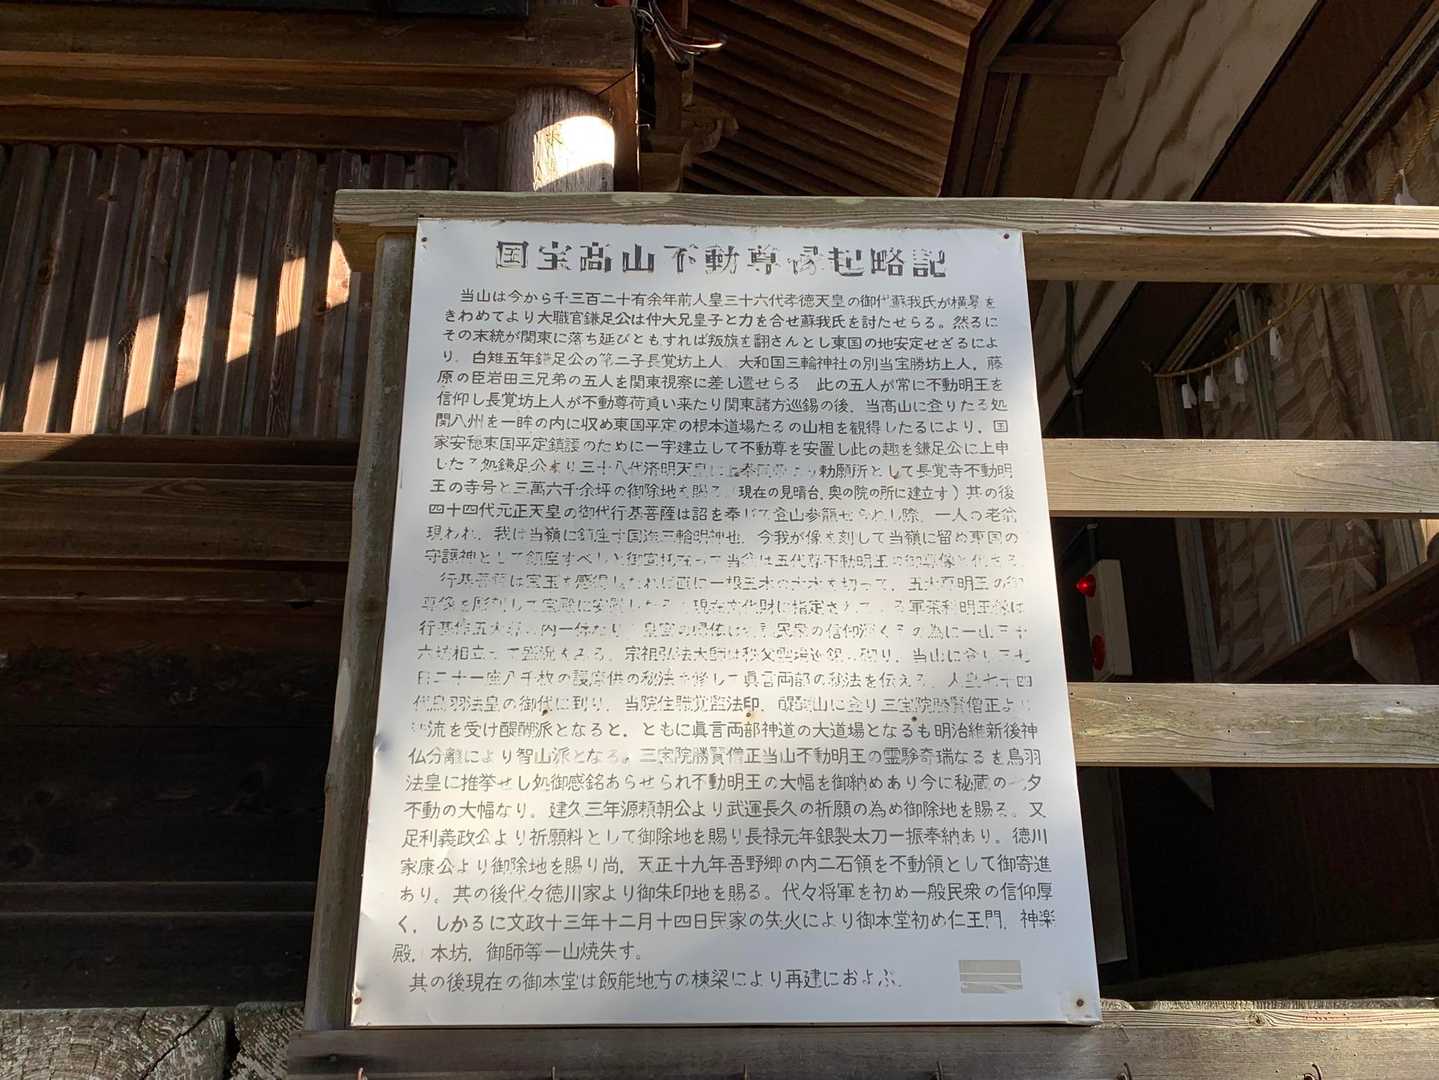 国宝高山不動尊縁起略記
当山は今から千三百二十有余年前人皇三十六代孝徳天皇の御代蘇我氏が横暴を
きわめてより大職官鎌足公は仲大兄皇子と力を合せ蘇我氏を討たせらる。然るに
その末統が関東に落ち延びともすれば叛旗を翻さんとし東国の地安定せざるによ
り、白雉五年鎌足公の第二子長覚坊上人、大和国三輪神社の別当宝勝坊上人、藤
原の臣岩田三兄弟の五人を関東視察に差し遣せらる 此の五人が常に不動明王を
信仰し長覚坊上人が不動尊荷負い来たり関東諸方巡錫の後、当髙山に登りたる処
関八州を一眸の内に収め東国平定の根本道場たるの山相を観得したるにより、国
家安穏東国平定鎮護のために一宇建立して不動尊を安置し此の趣を鎌足公に上申
したる処鎌足公より三十八代済明天皇に上奏 勅願所として長覚寺不動明
王の寺号と三萬六千余坪の御除地を賜る（現在の見晴台、奥の院の所に建立す）其の後
四十四代元正天皇の御代行基菩薩は詔を奉じて登山参籠せられし際、一人の老翁
現われ、我は当嶺に鎮座す国造三輪明神也、今我が像を刻して当嶺に留め東国の
守護神として鎮座すべしと御宣託在って当 は五代尊不動明王の御尊像と化する
行基菩薩は宝玉を感得しなれば直に一根三木の大木を切って、五大尊明王の御
尊像を彫刻して宝殿に安 したる 現在文化財に指定されている軍荼利明王像は
行基作五大尊の内一体なり 皇室の帰依 民衆の信仰深くその為に一山三十
六坊相立って盛況をみる、宗祖弘法大師は秩父霊場巡錫の砌り、当山に登り三七
日二十一座八千枚の護摩供の秘法を修して眞言両部の秘法を伝える、人皇七十四
代鳥羽法皇の御代に到り、当院住職覚 法印、醍醐山に登り三宝院勝賢僧正より
法流を受け醍醐派となると、ともに眞言両部神道の大道場となるも明治維新後神
仏分離により智山派となる。三宝院勝賢僧正当山不動明王の霊験奇瑞なるを鳥羽
法皇に推挙せし処御感銘あらせられ不動明王の大幅を御納めあり今に秘蔵の 夕
不動の大幅なり。建久三年源頼朝公より武運長久の祈願の為め御除地を賜る。又
足利義政公より祈願料として御除地を賜り長禄元年銀製太刀一振奉納あり。徳川
家康公より御除地を賜り尚、天正十九年吾野郷の内二石領を不動領として御寄進
あり。其の後代々徳川家より御朱印地を賜る。代々将軍を初め一般民衆の信仰厚
く、しかるに文政十三年十二月十四日民家の失火により御本堂初め仁王門、神楽
殿、本坊、御師等一山焼失す。
其の後現在の御本堂は飯能地方の棟梁により再建におよぶ